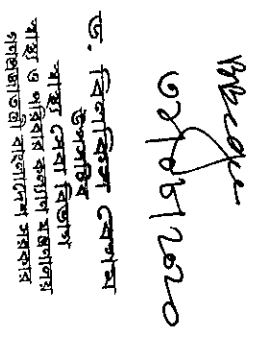 ড. বিলকিস বেগম
উপসচিব
স্বাস্থ্য সেবা বিভাগ
স্বাস্থ্য ও পরিবার কল্যাণ মন্ত্রণালয়
গণপ্রজাতন্ত্রী বাংলাদেশ সরকার